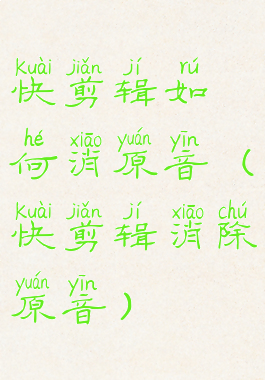 kuài jiǎn jí rú
快剪辑如
hé xiāo yuán yīn
何消原音（
kuài jiǎn jí xiāo chú
快剪辑消除
yuán yīn
原音）